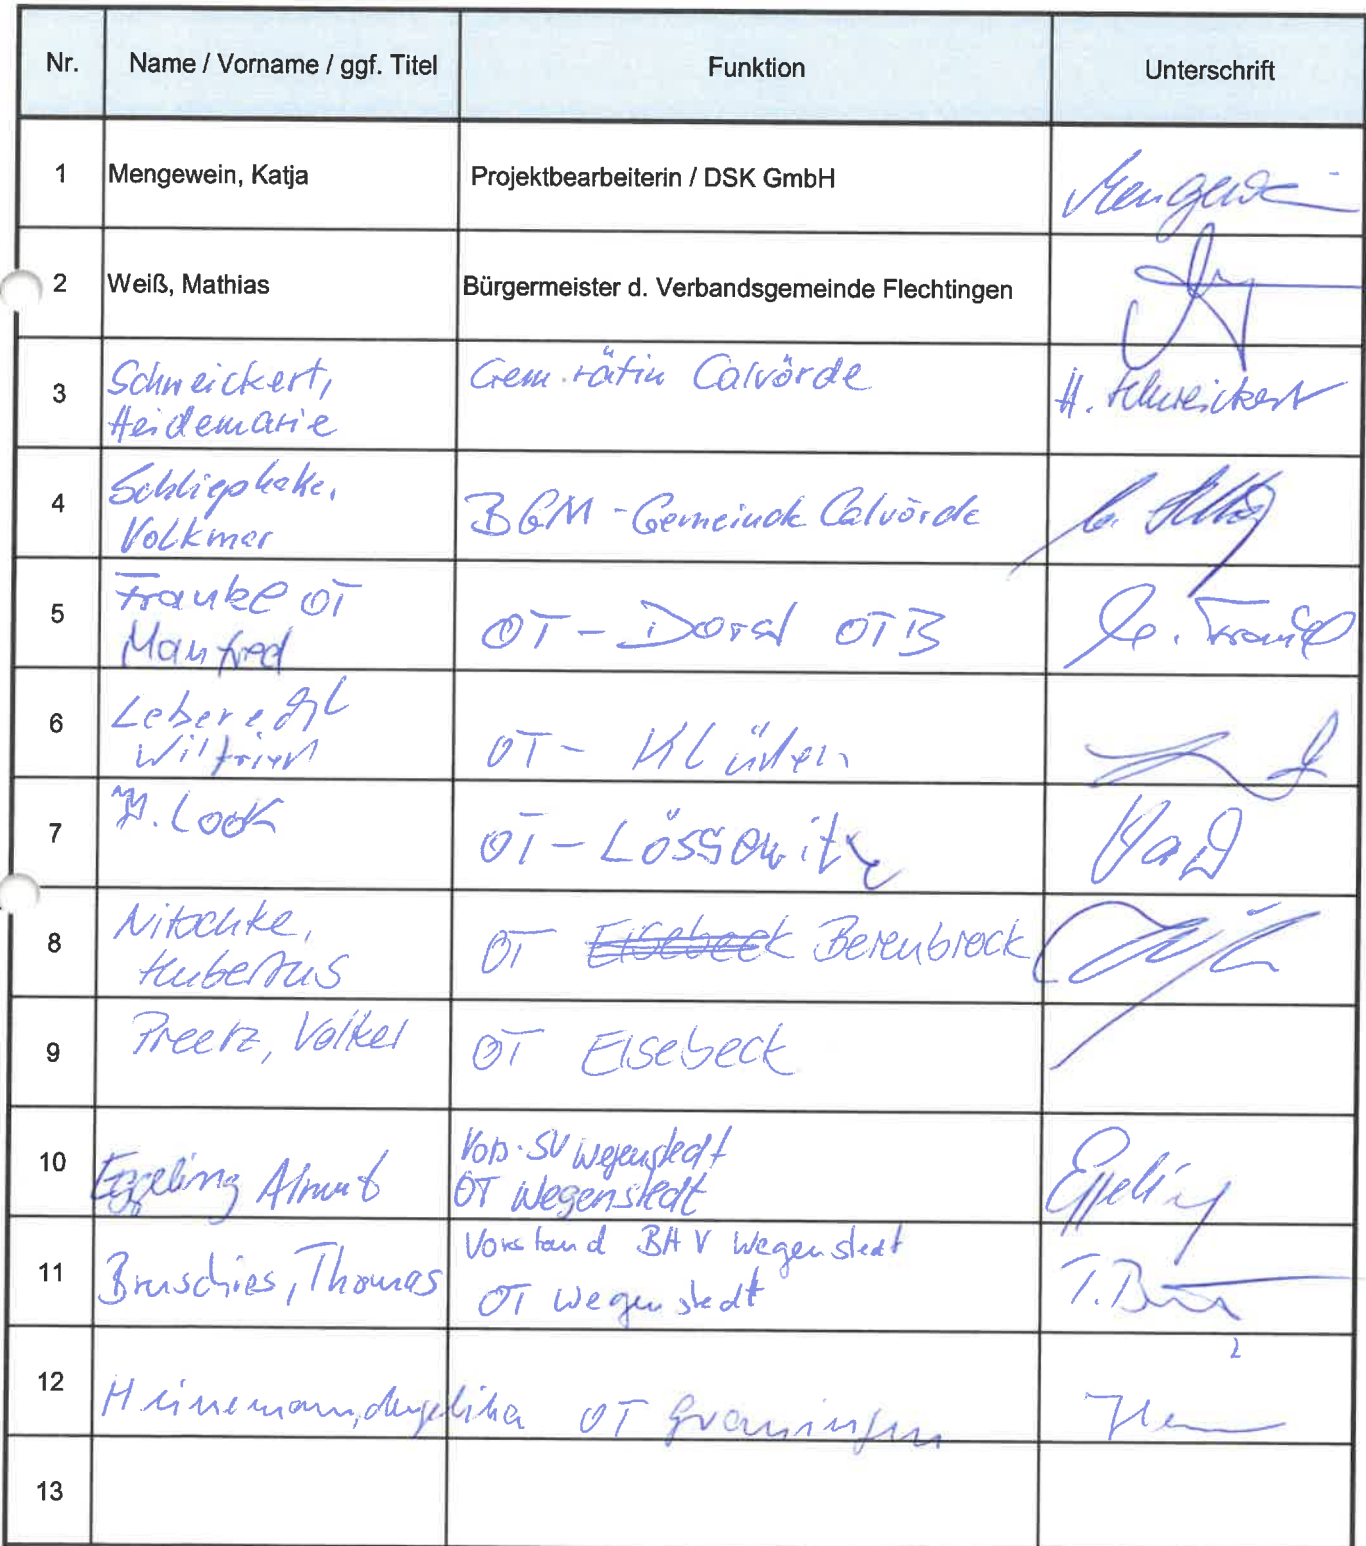 Nr. Name / Vorname / ggf. Titel Funktion Unterschrift
1 Mengewein, Katja Projektbearbeiterin / DSK GmbH Mengewei
2 Weiß, Mathias Bürgermeister d. Verbandsgemeinde Flechtingen
3 Schneickert, Gem.rätin Calvörde H. Schneickert
Heidemarie
4 Schliephake, BGM - Gemeinde Calvörde
Volkmer
5 Franke OT OT - Dorst OTB
Manfred
6 Leberecht OT - Klüden
Wilfried
7 M. Look OT - Lössewitz
8 Nitschke, OT Elsebeck Berenbrock
Hubertus
9 Preetz, Volker OT Elsebeck
10 Eggeling Almut Vors. SV Wegenstedt Eggeling
OT Wegenstedt
11 Bruschies, Thomas Vorstand BHV Wegenstedt
OT Wegenstedt
12 Heinemann, Angelika OT Grauingen
13